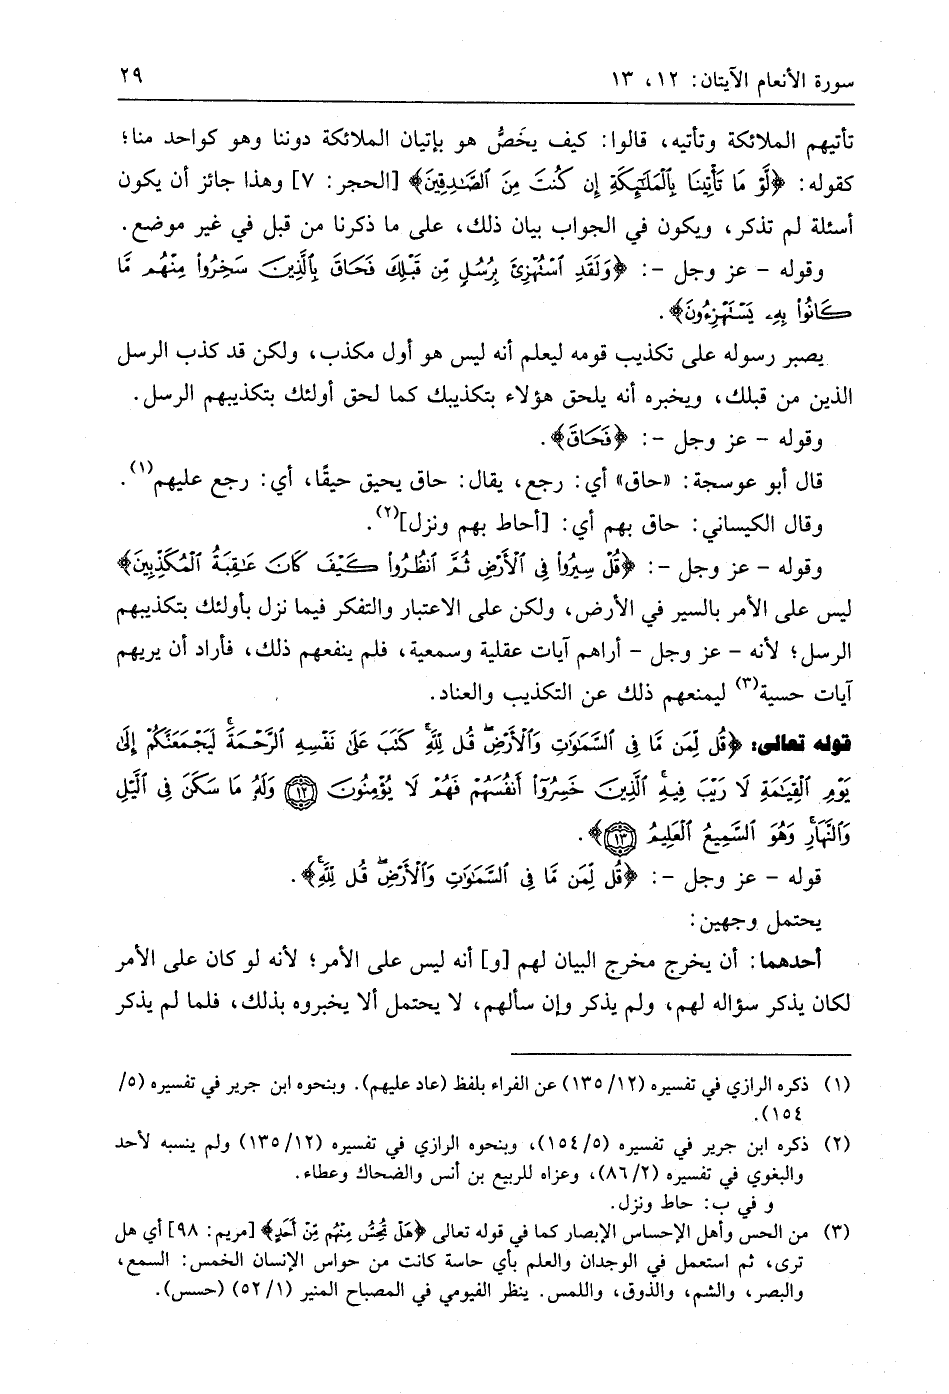 سورة الأنعام الآيتان: ١٢، ١٣ ٢٩
تأتيهم الملائكة وتأتيه، قالوا: كيف يخَصُّ هو بإتيان الملائكة دوننا وهو كواحد منا؛
كقوله: ﴿لَّوْ مَا تَأْتِينَا بِالْمَلَٰٓئِكَةِ إِن كُنتَ مِنَ ٱلصَّٰدِقِينَ﴾ [الحجر: ٧] وهذا جائز أن يكون
أسئلة لم تذكر، ويكون في الجواب بيان ذلك، على ما ذكرنا من قبل في غير موضع.
وقوله - عز وجل -: ﴿وَلَقَدِ ٱسْتُهْزِئَ بِرُسُلٍ مِّن قَبْلِكَ فَحَاقَ بِالَّذِينَ سَخِرُوا۟ مِنْهُم مَّا
كَانُوا۟ بِهِۦ يَسْتَهْزِءُونَ﴾.
يصبر رسوله على تكذيب قومه ليعلم أنه ليس هو أول مكذب، ولكن قد كذب الرسل
الذين من قبلك، ويخبره أنه يلحق هؤلاء بتكذيبك كما لحق أولئك بتكذيبهم الرسل.
وقوله - عز وجل -: ﴿فَحَاقَ﴾.
قال أبو عوسجة: «حاق» أي: رجع، يقال: حاق يحيق حيقًا، أي: رجع عليهم(١).
وقال الكيساني: حاق بهم أي: [أحاط بهم ونزل](٢).
وقوله - عز وجل -: ﴿قُلْ سِيرُوا۟ فِى ٱلْأَرْضِ ثُمَّ ٱنظُرُوا۟ كَيْفَ كَانَ عَٰقِبَةُ ٱلْمُكَذِّبِينَ﴾
ليس على الأمر بالسير في الأرض، ولكن على الاعتبار والتفكر فيما نزل بأولئك بتكذيبهم
الرسل؛ لأنه - عز وجل - أراهم آيات عقلية وسمعية، فلم ينفعهم ذلك، فأراد أن يريهم
آيات حسية(٣) ليمنعهم ذلك عن التكذيب والعناد.
قوله تعالى: ﴿قُل لِّمَن مَّا فِى ٱلسَّمَٰوَٰتِ وَٱلْأَرْضِ ۖ قُل لِّلَّهِ ۚ كَتَبَ عَلَىٰ نَفْسِهِ ٱلرَّحْمَةَ ۚ لَيَجْمَعَنَّكُمْ إِلَىٰ
يَوْمِ ٱلْقِيَٰمَةِ لَا رَيْبَ فِيهِ ۚ ٱلَّذِينَ خَسِرُوٓا۟ أَنفُسَهُمْ فَهُمْ لَا يُؤْمِنُونَ ﴿١٢﴾ وَلَهُۥ مَا سَكَنَ فِى ٱلَّيْلِ
وَٱلنَّهَارِ ۚ وَهُوَ ٱلسَّمِيعُ ٱلْعَلِيمُ ﴿١٣﴾﴾.
قوله - عز وجل -: ﴿قُل لِّمَن مَّا فِى ٱلسَّمَٰوَٰتِ وَٱلْأَرْضِ ۖ قُل لِّلَّهِ ۚ﴾.
يحتمل وجهين:
أحدهما: أن يخرج مخرج البيان لهم [و] أنه ليس على الأمر؛ لأنه لو كان على الأمر
لكان يذكر سؤاله لهم، ولم يذكر وإن سألهم، لا يحتمل ألا يخبروه بذلك، فلما لم يذكر
(١) ذكره الرازي في تفسيره (١٣٥/١٢) عن الفراء بلفظ (عاد عليهم). وبنحوه ابن جرير في تفسيره (٥/
١٥٤).
(٢) ذكره ابن جرير في تفسيره (١٥٤/٥)، وبنحوه الرازي في تفسيره (١٣٥/١٢) ولم ينسبه لأحد
والبغوي في تفسيره (٨٦/٢)، وعزاه للربيع بن أنس والضحاك وعطاء.
و في ب: حاط ونزل.
(٣) من الحس وأهل الإحساس الإبصار كما في قوله تعالى ﴿هَلْ تُحِسُّ مِنْهُم مِّنْ أَحَدٍ﴾ [مريم: ٩٨] أي هل
ترى، ثم استعمل في الوجدان والعلم بأي حاسة كانت من حواس الإنسان الخمس: السمع،
والبصر، والشم، والذوق، واللمس. ينظر الفيومي في المصباح المنير (٥٢/١) (حسس).